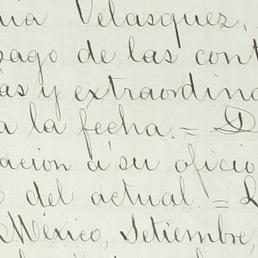 Velasquez,
pago de las cont
as y extraordina
a la fecha. =
acion á su oficio
del actual. =
México, Setiembre,